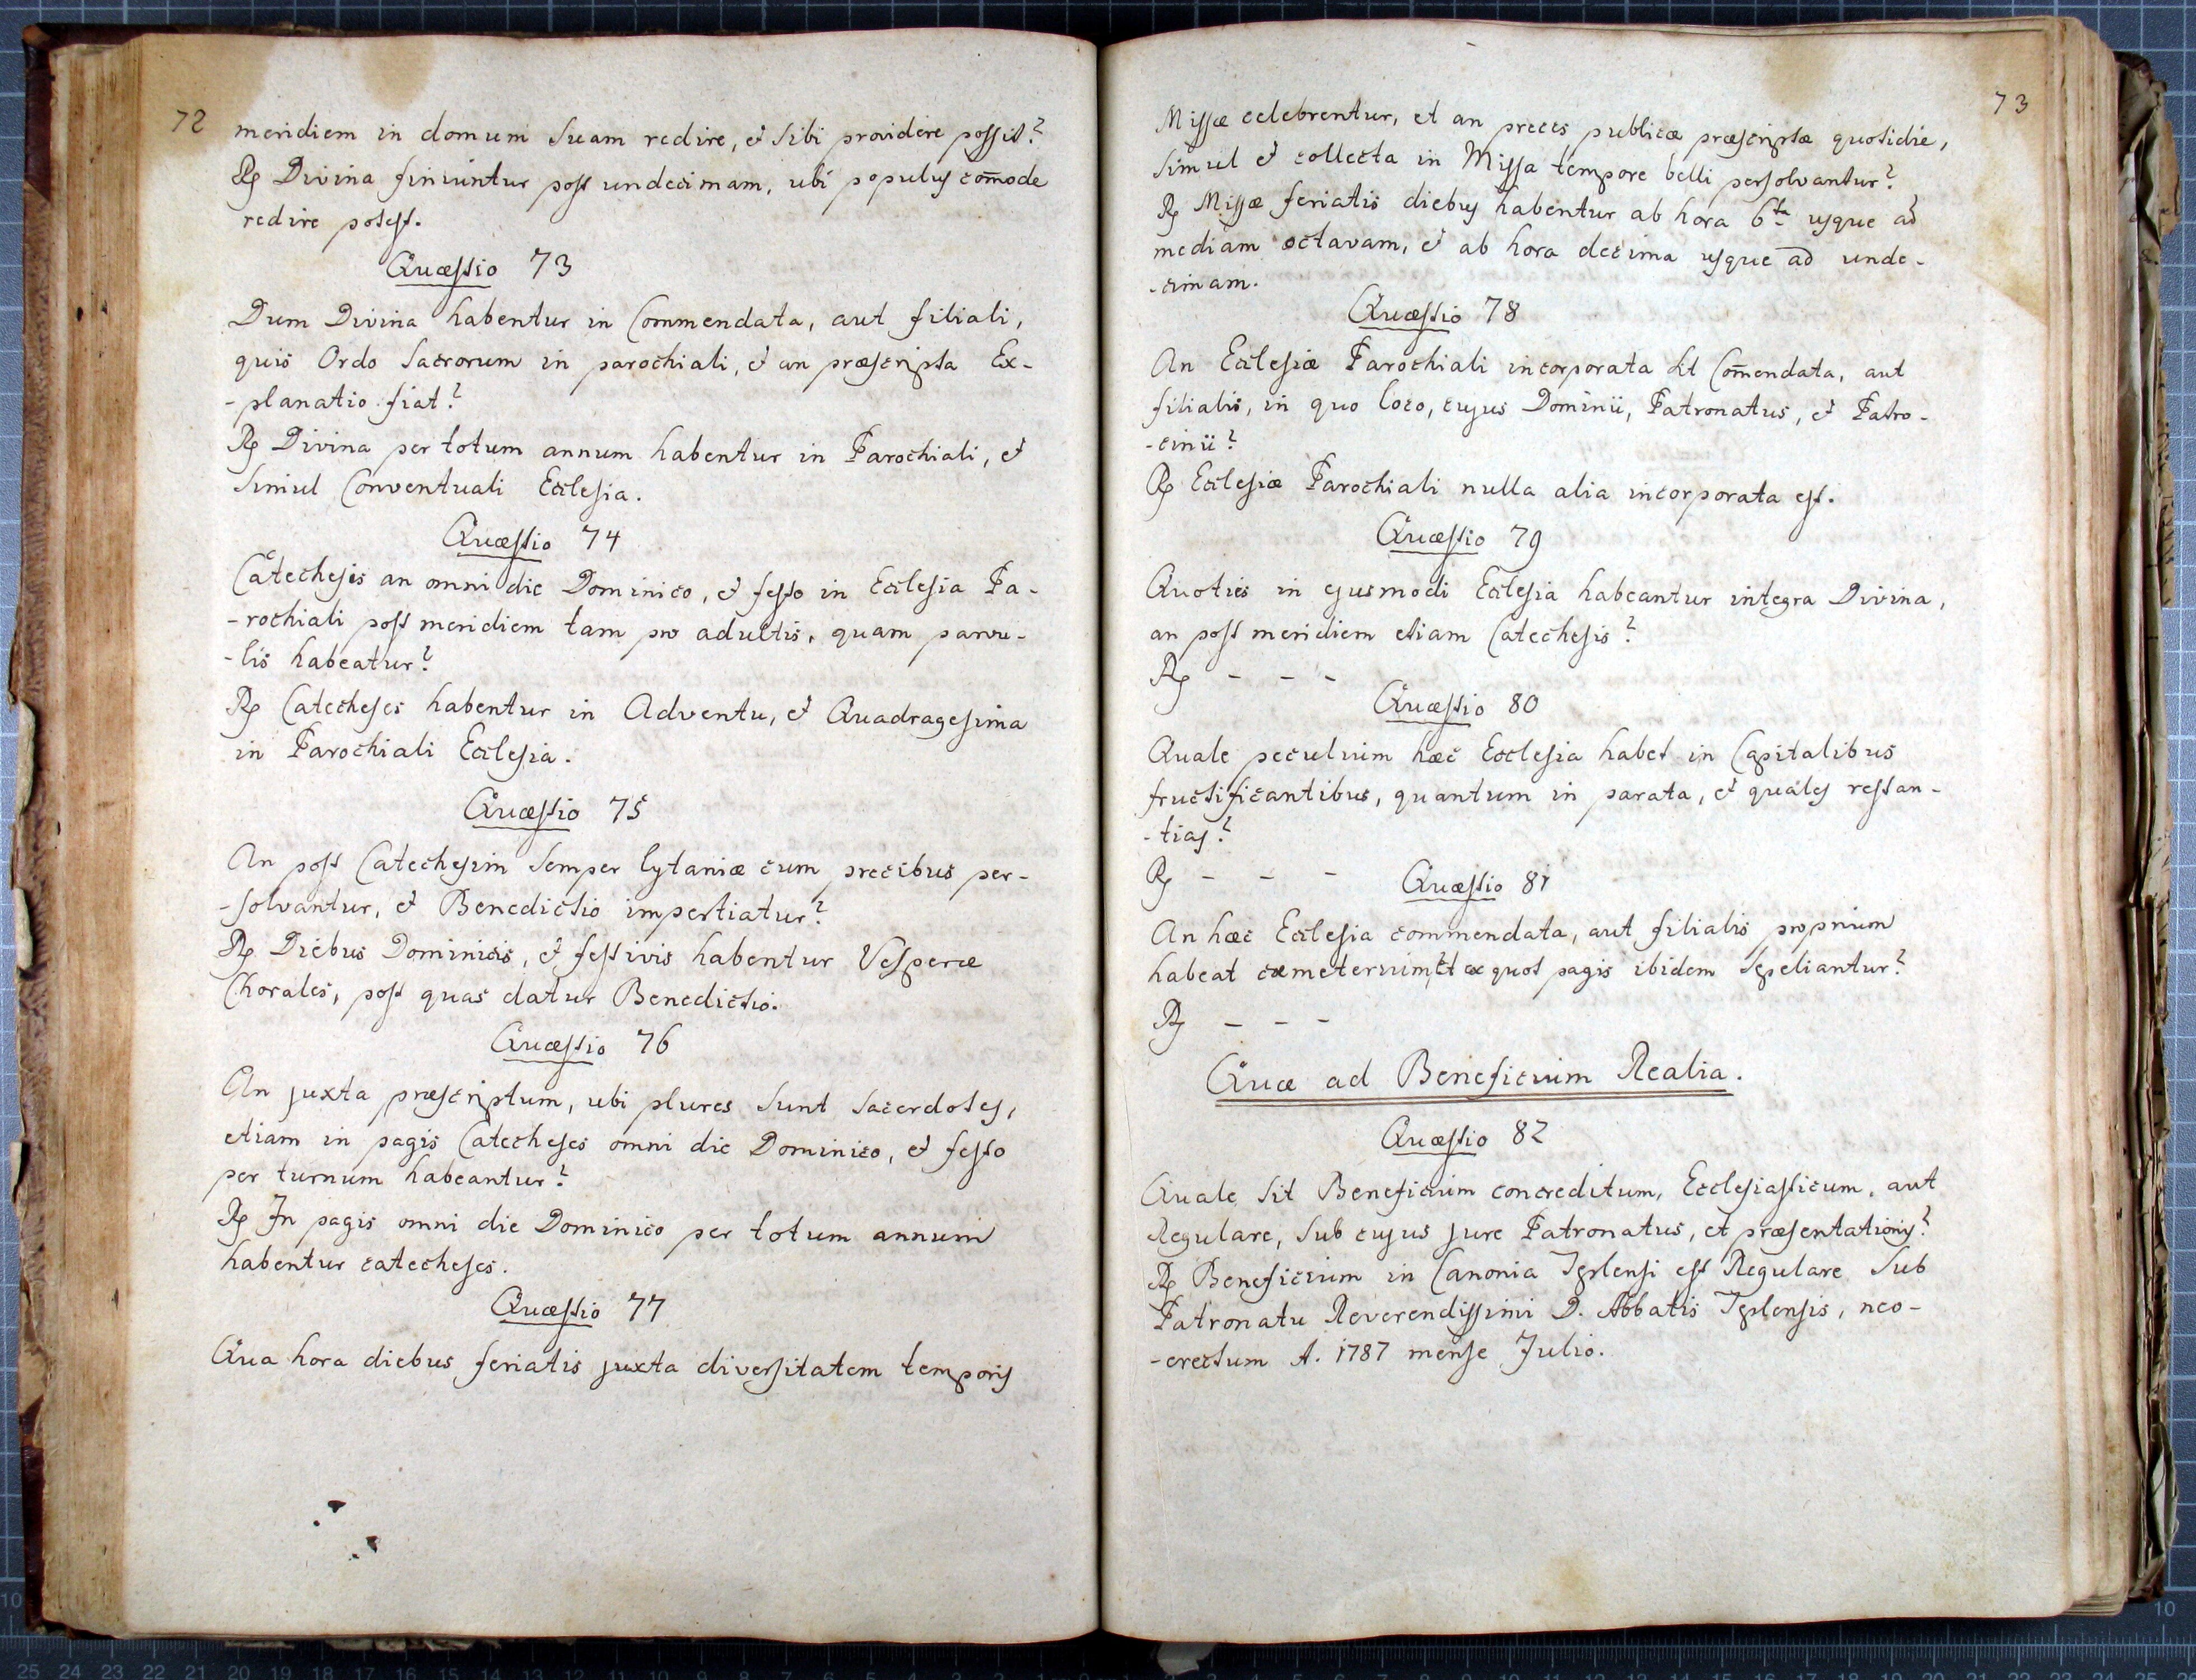 72
meridiem in domum suam redire, et sibi providere possit?
℞ Divina finiuntur post undecimam, ubi populus com̄ode
redire potest.
Quæstio 73
Dum Divina habentur in Commendata, aut filiali,
quis Ordo Sacrorum in parochiali, et an præscripta Ex-
-planatio fiat?
℞ Divina per totum annum habentur in Parochiali, et
simul Conventuali Ecclesia.
Quæstio 74
Catechesis an omni die Dominico, et festo in Ecclesia Pa-
-rochiali post meridiem tam pro adultis, quam parvu-
-lis habeatur?
℞ Catecheses habentur in Adventu, et Quadragesima
in Parochiali Ecclesia.
Quæstio 75
An post Catechesim semper lytaniæ cum precibus per-
-solvantur, et Benedictio impertiatur?
℞ Diebus Dominicis, et festivis habentur Vesperæ
Chorales, post quas datur Benedictio.
Quæstio 76
An juxta præscriptum, ubi plures sunt sacerdotes,
etiam in pagis Catecheses omni die Dominico, et festo
per turnum habeantur?
℞ In pagis omni die Dominico per totum annum
habentur catecheses.
Quæstio 77
Qua hora diebus feriatis juxta diversitatem temporis
73
Missæ celebrentur, et an preces publicæ præscriptæ quotidie,
simul et collecta in Missa tempore belli persolvantur?
℞ Missæ feriatis diebus habentur ab hora 6ta usque ad
mediam octavam, et ab hora decima usque ad unde-
-cimam.
Quæstio 78
An Ecclesiæ Parochiali incorporata sit Com̄endata, aut
filialis, in quo loco, cujus Dominii, Patronatus, et Patro-
-cinii?
℞ Ecclesiæ Parochiali nulla alia incorporata est.
Quæstio 79
Quoties in ejusmodi Ecclesia habeantur integra Divina,
an post meridiem etiam Catechesis?
℞ - - -
Quæstio 80
Quale peculium hæc Ecclesia habet in Capitalibus
fructificantibus, quantum in parata, et quales restan-
-tias?
℞ - - -
Quæstio 81
An hæc Ecclesia commendata, aut filialis proprium
habeat cæmeterium, et ex quot pagis ibidem sepeliantur?
℞ - - -
Quæ ad Beneficium Realia.
Quæstio 82
Quale sit Beneficium concreditum, Ecclesiasticum, aut
Regulare, sub cujus jure Patronatus, et præsentationis?
℞ Beneficium in Canonia Iglensi est Regulare sub
Patronatu Reverendissimi D. Abbatis Iglensis, neo-
-erectum A. 1787 mense Julio.